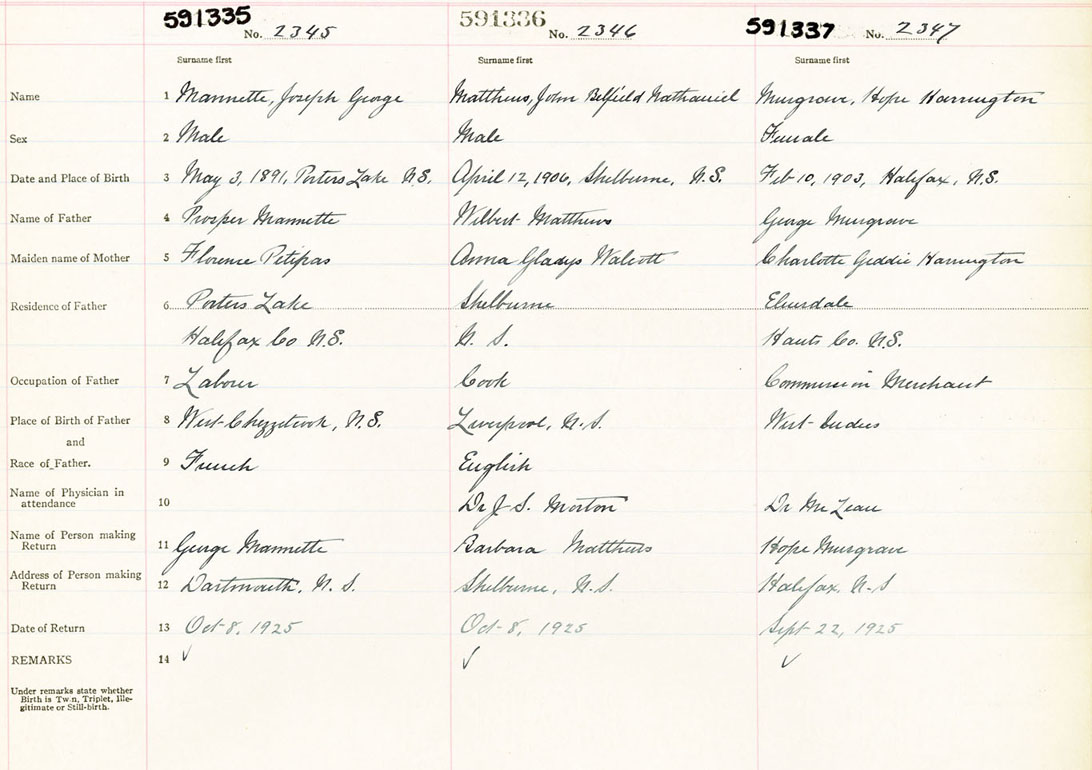 591335 591336 591337
No. 2345 No. 2346 No. 2347
Surname first Surname first Surname first
Name 1 Mannette, Joseph George Matthews, John Belfield Nathaniel Musgrave, Hope Harrington
Sex 2 Male Male Female
Date and Place of Birth 3 May 3, 1891, Porters Lake N.S. April 12, 1906, Shelburne, N.S. Feb 10, 1903, Halifax, N.S.
Name of Father 4 Prosper Mannette Wilbert Matthews George Musgrave
Maiden name of Mother 5 Florence Petipas Anna Gladys Walcott Charlotte Geddie Harrington
Residence of Father 6 Porters Lake Shelburne Elmsdale
Halifax Co N.S. N. S. Hants Co. N.S.
Occupation of Father 7 Labour Cook Commission Merchant
Place of Birth of Father 8 West Chezzetcook, N.S. Liverpool, N.S. West Indies
and
Race of Father. 9 French English
Name of Physician in
attendance 10 Dr J. S. Morton Dr McLean
Name of Person making
Return 11 George Mannette Barbara Matthews Hope Musgrave
Address of Person making
Return 12 Dartmouth, N. S. Shelburne, N.S. Halifax, N-S
Date of Return 13 Oct 8, 1925 Oct 8, 1925 Sept 22, 1925
REMARKS 14 ✓ ✓ ✓
Under remarks state whether
Birth is Twin, Triplet, Ille-
gitimate or Still-birth.